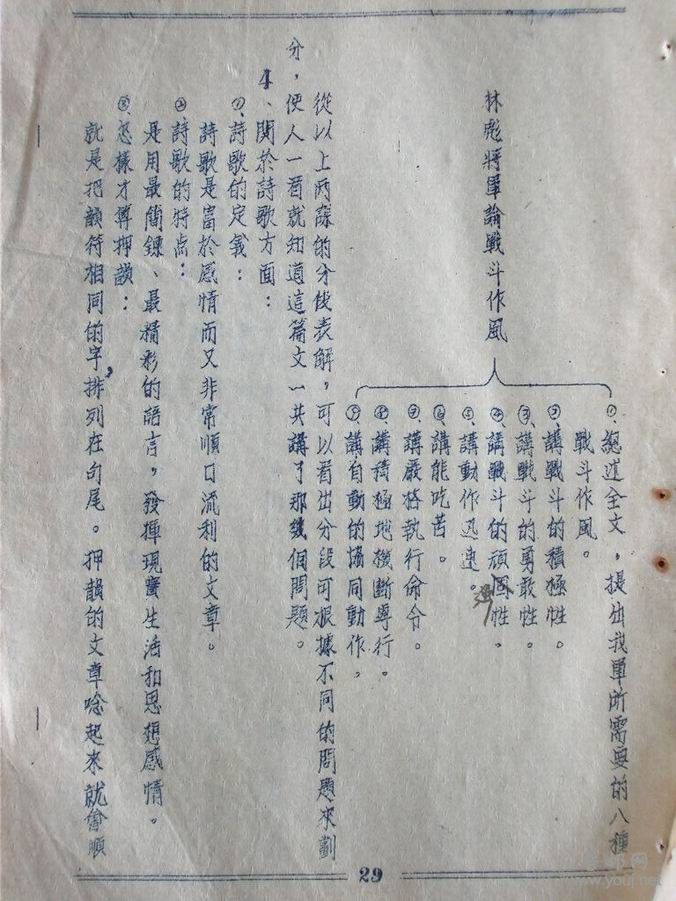 林彪將軍論戰斗作風
①總述全文，提出我軍所需要的八種
戰斗作風。
②講戰斗的積極性。
③講戰斗的勇敢性。
④講戰斗的頑强性。
⑤講動作迅速。
⑥講能吃苦。
⑦講嚴格執行命令。
⑧講積極地機斷專行。
⑨講自動的協同動作。
從以上兩課的分段表解，可以看出分段可根據不同的問題來劃
分，使人一看就知道這篇文一共講了那幾個問題。
4、關於詩歌方面：
①詩歌的定義：
詩歌是富於感情而又非常順口流利的文章。
②詩歌的特点：
是用最簡鍊、最精彩的語言，發揮現實生活和思想感情。
③怎樣才算押韻：
就是把韻符相同的字，排列在句尾。押韻的文章唸起來就會順
29
www.youj.net